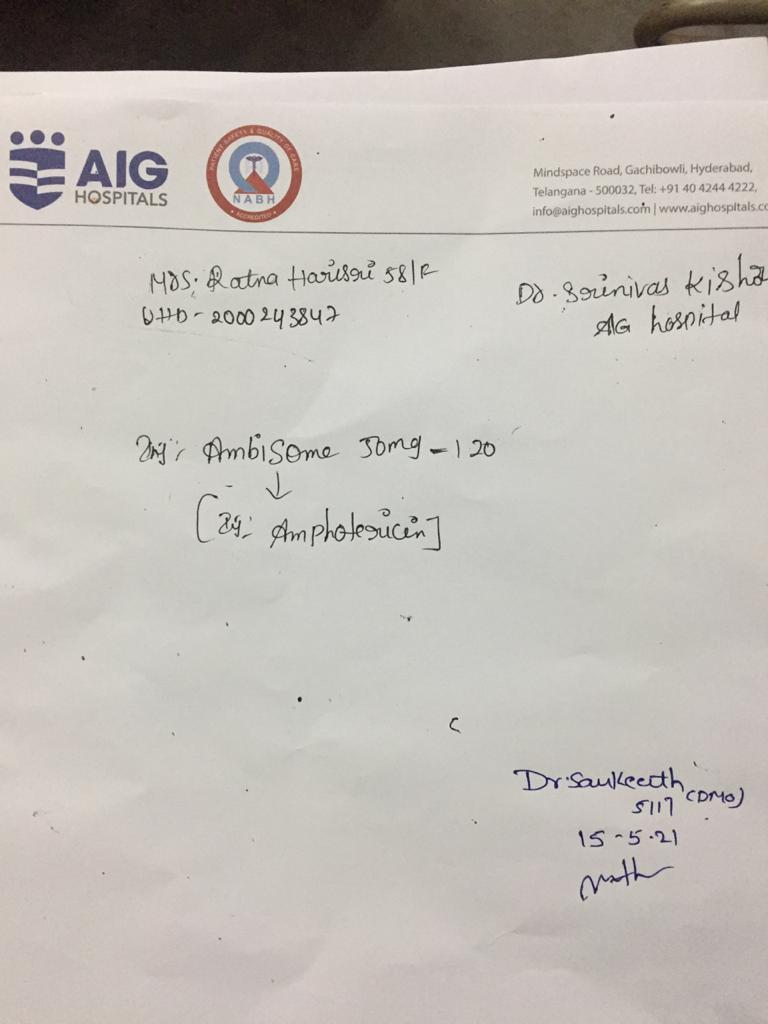 AIG
HOSPITALS
PATIENT SAFETY & QUALITY OF CARE
NABH
ACCREDITED
Mindspace Road, Gachibowli, Hyderabad,
Telangana - 500032, Tel: +91 40 4244 4222,
info@aighospitals.com | www.aighospitals.co
Mrs. Ratna Harisri 58/F
UHID - 2000243847
Dr. Srinivas Kisho
AIG hospital
Inj: Ambisome 50mg - 120
↓
[Inj: Amphotericin]
Dr. Saukeerth
5117 (DMO)
15-5-21